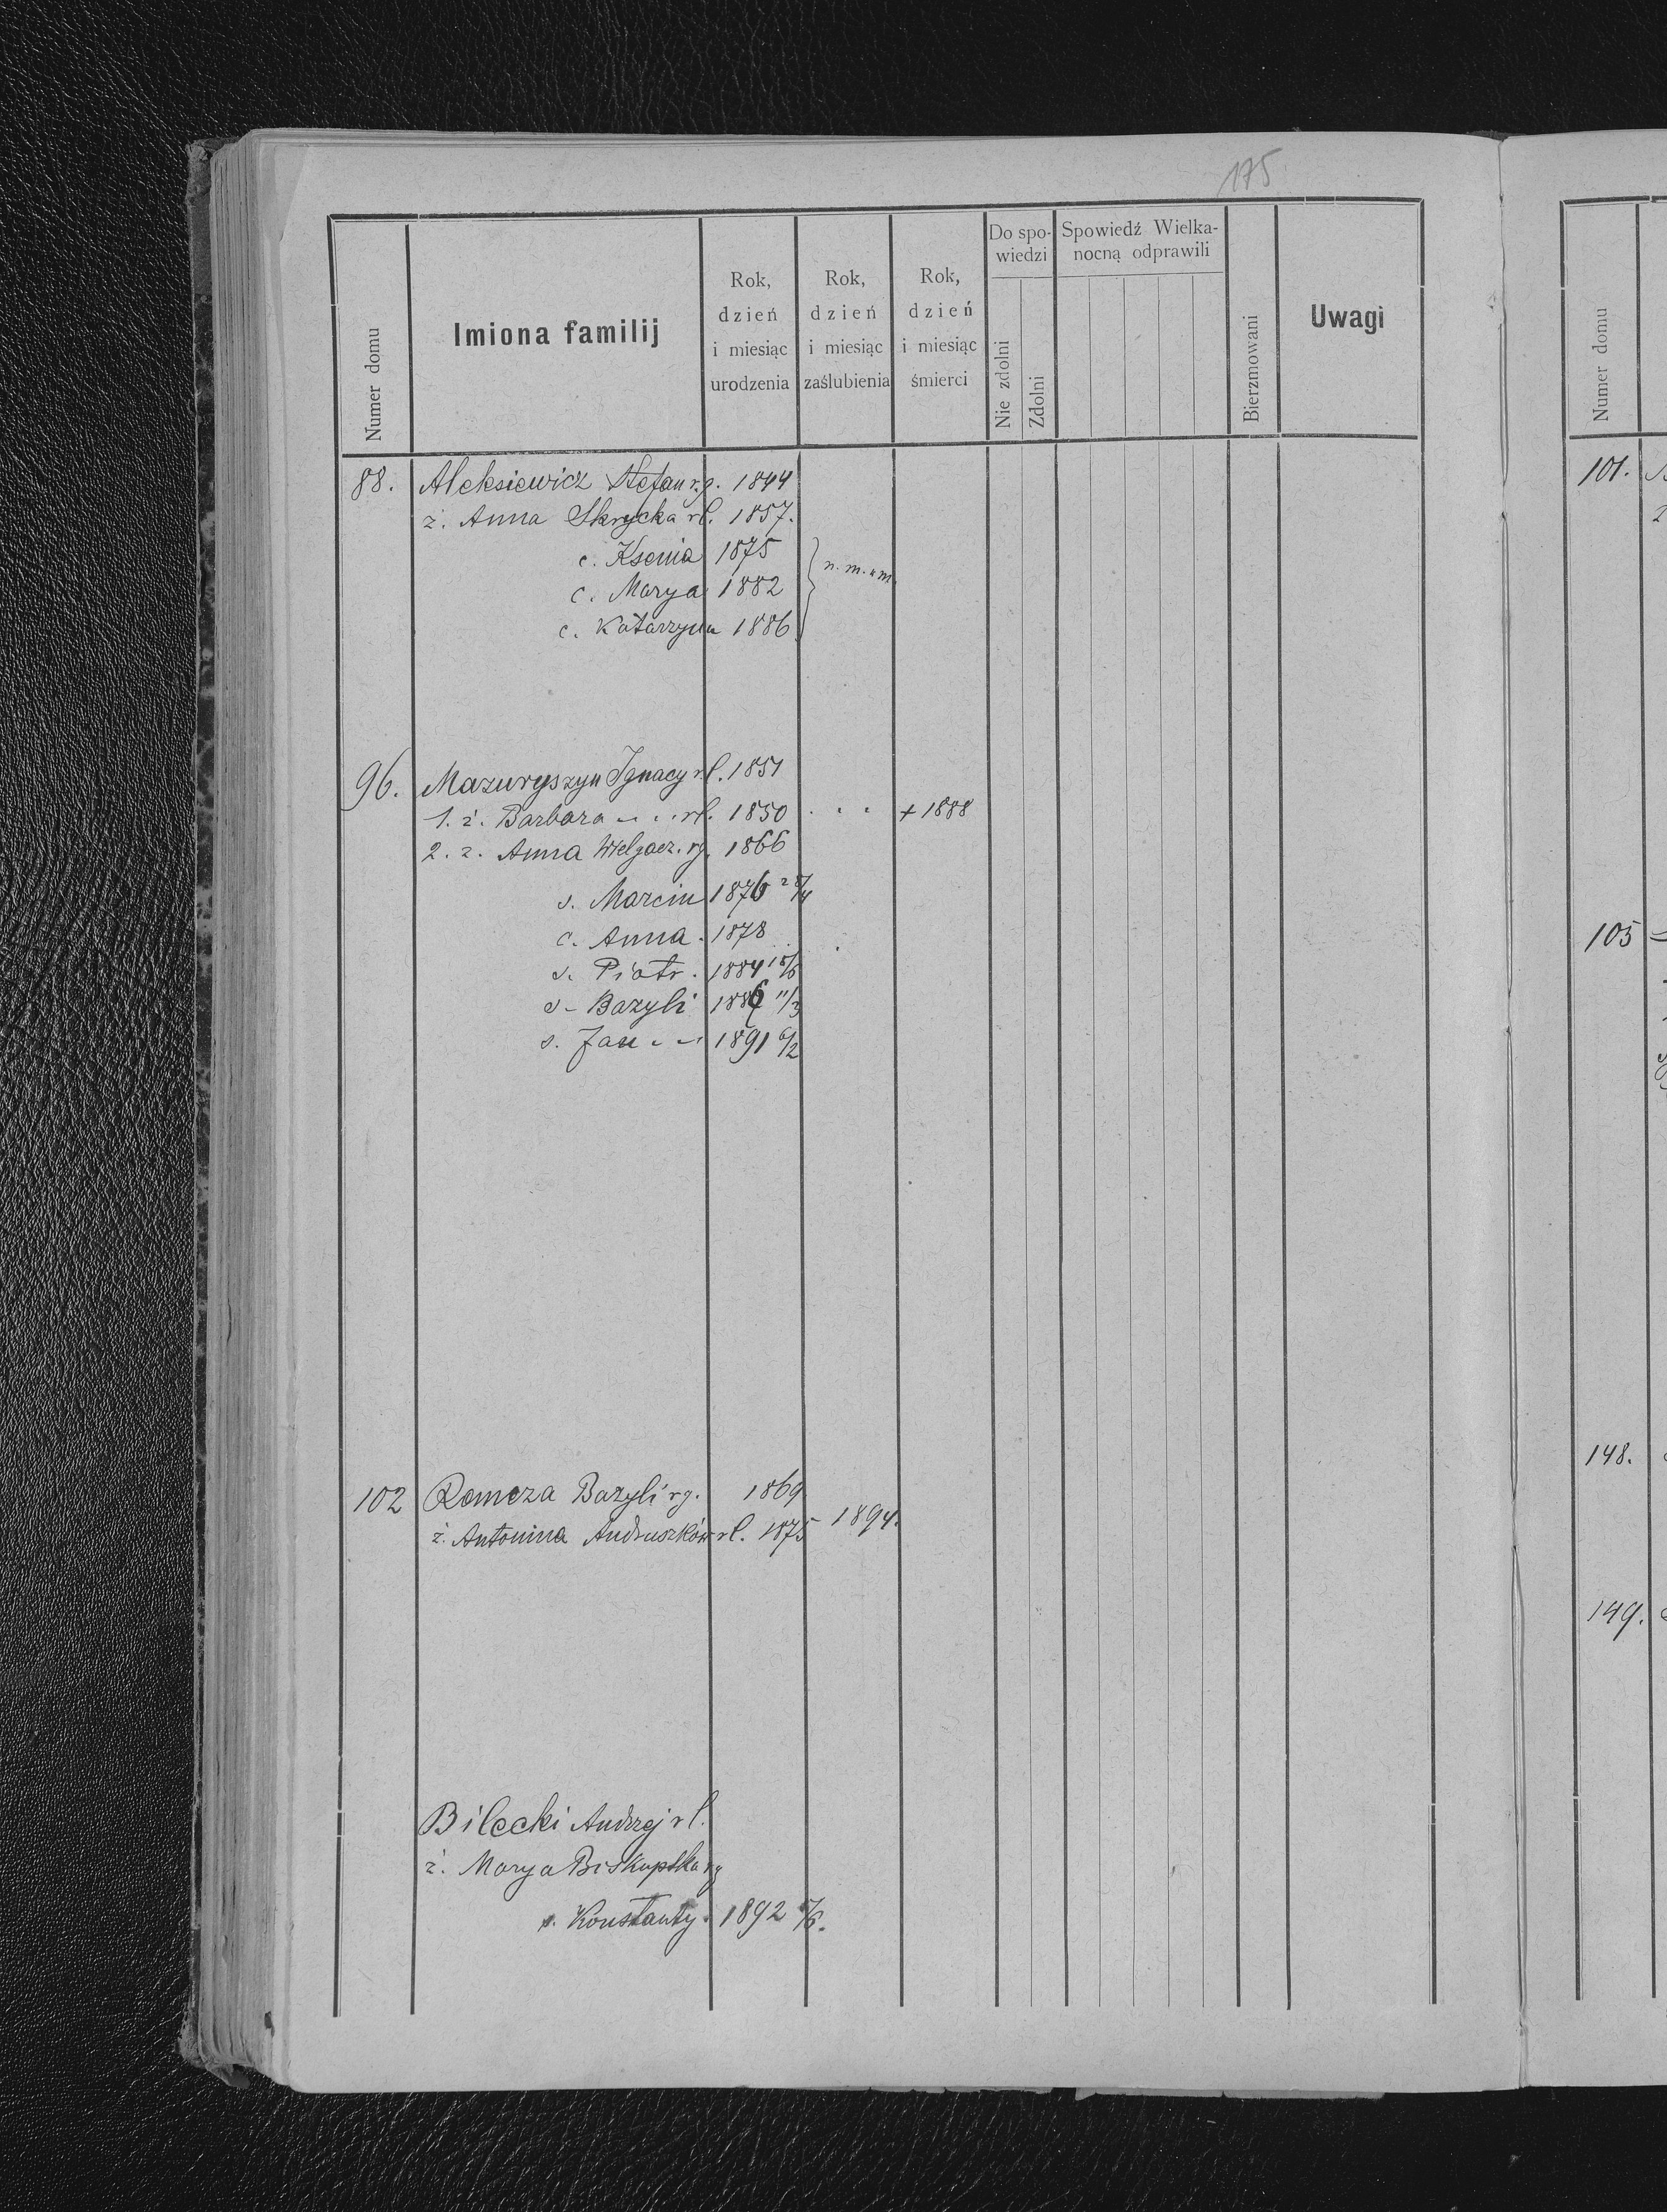 175
Numer domu
Imiona familij
Rok, dzień i miesiąc urodzenia
Rok, dzień i miesiąc zaślubienia
Rok, dzień i miesiąc śmierci
Do spowiedzi
Nie zdolni
Zdolni
Spowiedź Wielkanocną odprawili
Bierzmowani
Uwagi
88. Aleksiewicz Stefan r.g. 1844
ż. Anna Skrycka rł. 1857.
c. Ksenia 1875
n. m. um.
c. Marya 1882
c. Katarzyna 1886
96. Mazuryszyn Ignacy rł. 1851
1. ż. Barbara rł. 1850 + 1888
2. ż. Anna Wielgacz. rg. 1866
s. Marcin 1876 28/4
c. Anna. 1878
s. Piotr. 1884
s. Bazyli 1886 11/3
s. Jan 1891 6/2
102 Romcza Bazyli rg. 1869
ż. Antonina Andruszków rł. 1875 1894.
Bilecki Andrzej rł.
ż. Marya Biskupska rg
s. Konstanty. 1892
Numer domu
101.
105
148.
149.